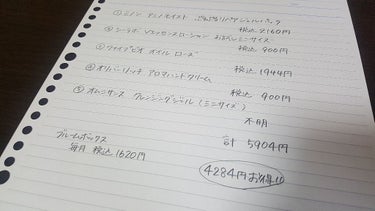 ① ミノン アミノモイスト ぷるぷるリペアジェルパック
税込 2160円
② シーラボ Vエッセンスローション おためしミニサイズ
税込 900円
③ ファイブビオ オイル ローズ
税込 1944円
④ オリバーリッチ アロマハンドクリーム
税込 900円
⑤ オムニサンス クレンジングジェル(ミニサイズ)
不明
計 5904円
ブルームボックス
毎月 税込1620円
4284円お得!!